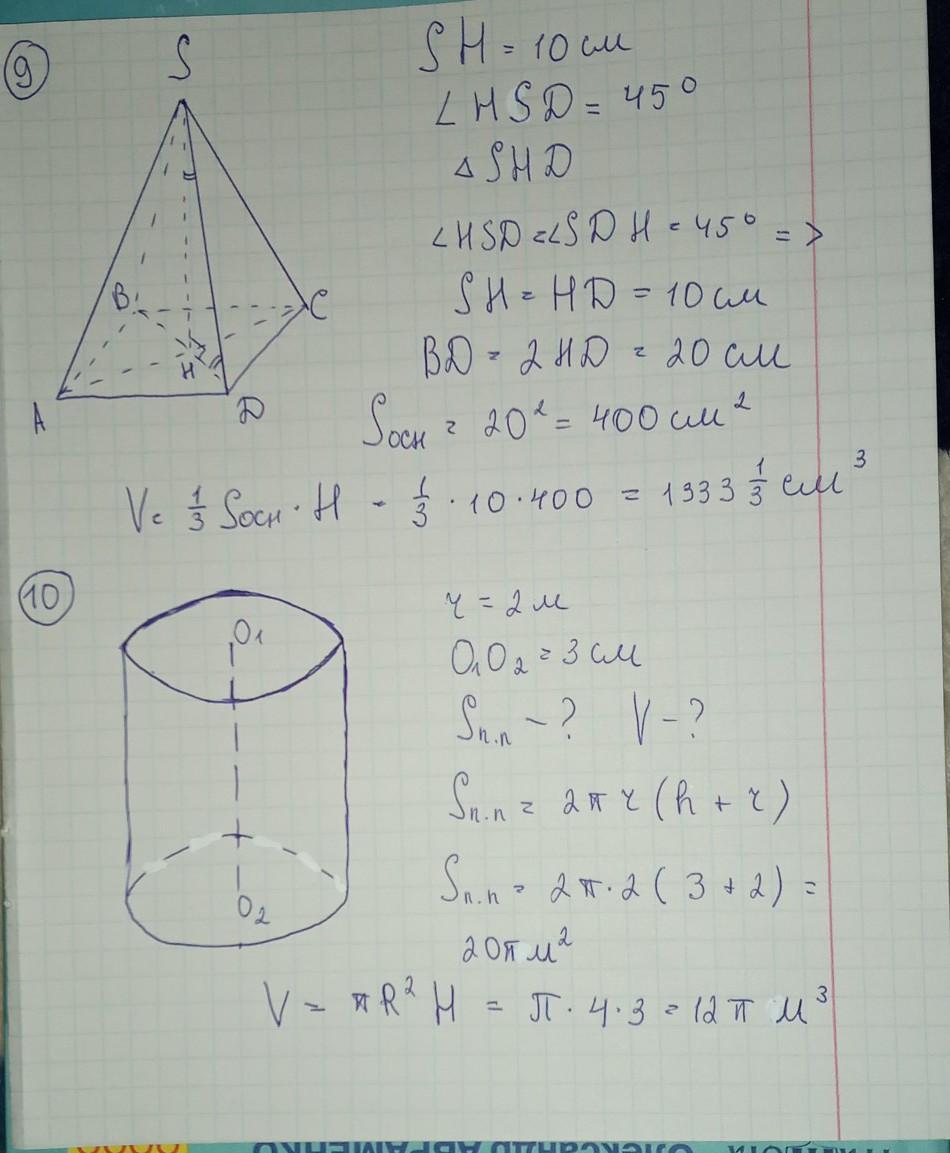 9
S
B
C
H
A
D
SH = 10 см
∠HSD = 45°
△SHD
∠HSD = ∠SDH = 45° =>
SH = HD = 10 см
BD = 2HD = 20 см
Sосн = 20² = 400 см²
V = 1/3 Sосн · H = 1/3 · 10 · 400 = 1333 1/3 см³
10
O₁
O₂
r = 2 м
O₁O₂ = 3 см
Sп.п – ? V – ?
Sп.п = 2πr (h + r)
Sп.п = 2π · 2 ( 3 + 2) =
20π м²
V = πR² H = π · 4 · 3 = 12π м³
Олександр АВРАМЕНКО